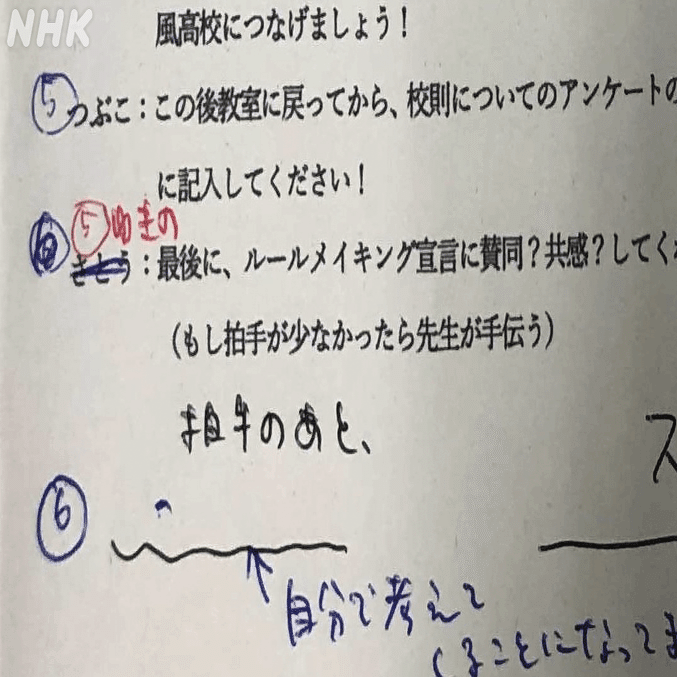 NHK
風高校につなげましょう！
⑤つぶこ：この後教室に戻ってから、校則についてのアンケートの
に記入してください！
⑤ゆきの
⑥さとう：最後に、ルールメイキング宣言に賛同？共感？してくれ
（もし拍手が少なかったら先生が手伝う）
拍手のあと、
ス
⑥
自分で考えて
くることになってま